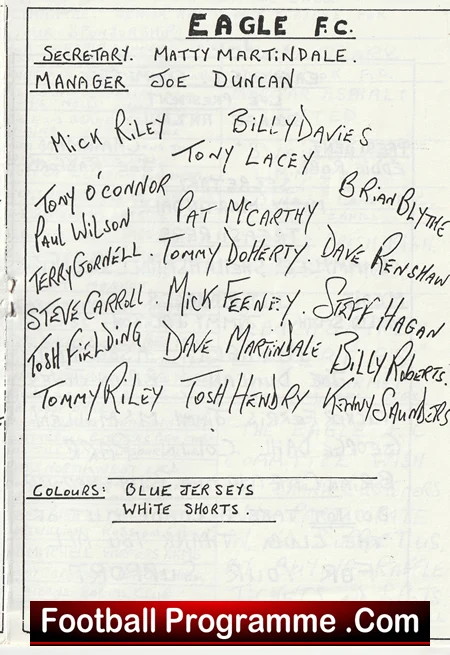 EAGLE F.C.
SECRETARY. MATTY MARTINDALE.
MANAGER JOE DUNCAN
MICK RILEY BILLY DAVIES
TONY LACEY
TONY O'CONNOR BRIAN BLYTHE
PAUL WILSON PAT MCCARTHY
TERRY GORNELL. TOMMY DOHERTY. DAVE RENSHAW
STEVE CARROLL MICK FEENEY. STEFF HAGAN
TOSH FIELDING DAVE MARTINDALE BILLY ROBERTS.
TOMMY RILEY TOSH HENDRY KENNY SAUNDERS
COLOURS: BLUE JERSEYS
WHITE SHORTS.
Football Programme .Com